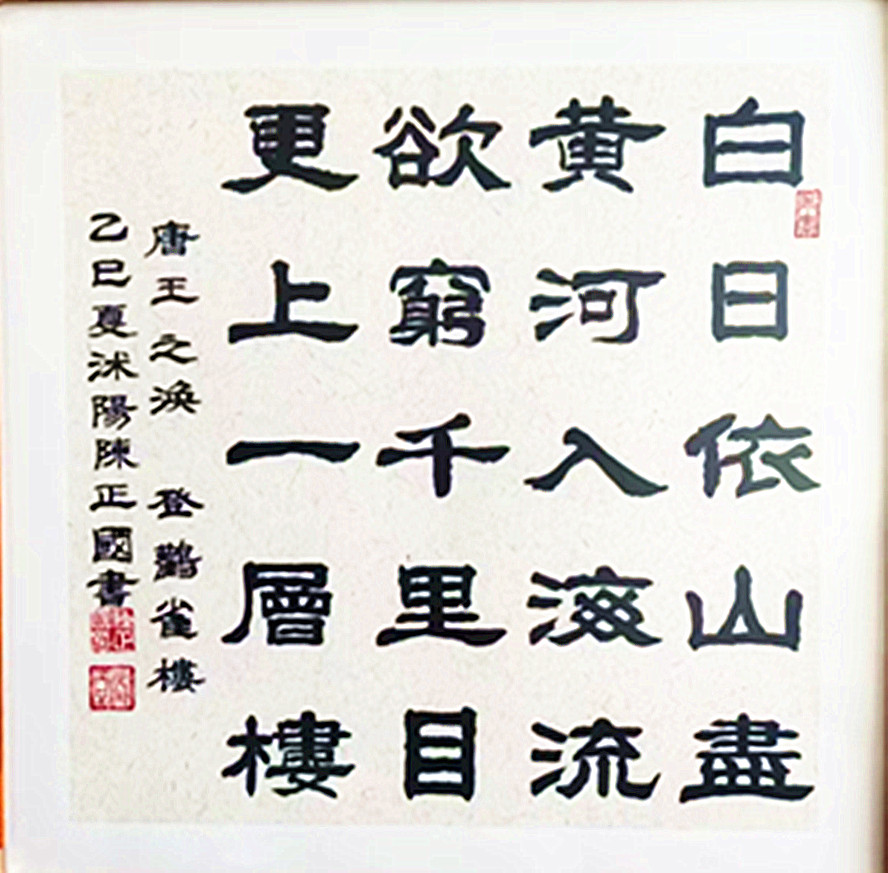 白日依山盡
黄河入海流
欲窮千里目
更上一層樓
唐王之渙 登鸛雀樓
乙巳夏沭陽陳正國書